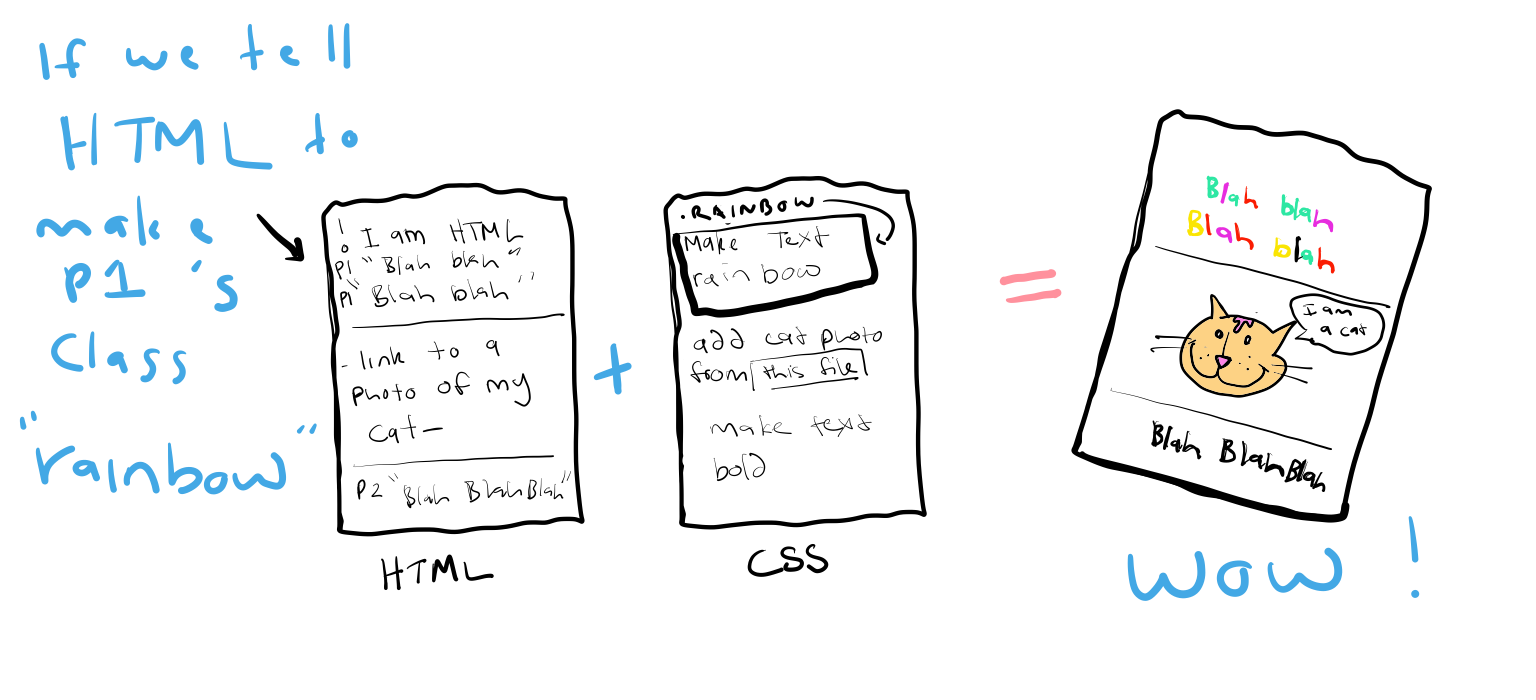 If we tell
HTML to
make
P1's
Class
"rainbow"
! I am HTML
P1 "Blah blah"
P1 "Blah blah"
- link to a
photo of my
cat -
P2 "Blah Blah Blah"
HTML
+
.RAINBOW
Make Text
rainbow
add cat photo
from this file
make text
bold
CSS
=
Blah blah
Blah blah
I am
a cat
Blah Blah Blah
Wow!